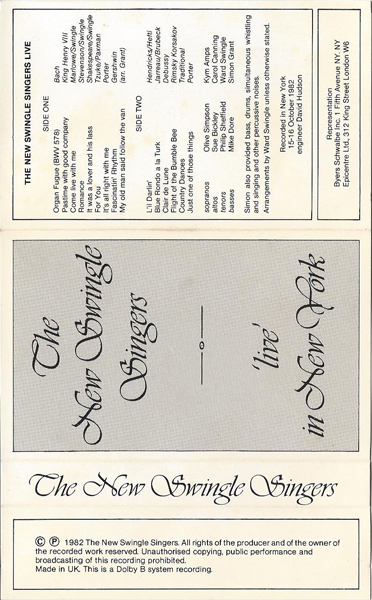 THE NEW SWINGLE SINGERS LIVE
SIDE ONE
Organ Fugue (BWV 578) Bach
Pastime with good company King Henry VIII
Come live with me Marlowe/Swingle
Romance Stevenson/Swingle
It was a lover and his lass Shakespeare/Swingle
For You Tzuke/Paxman
It's all right with me Porter
Fascinatin' Rhythm Gershwin
My old man said follow the van (arr. Grant)
SIDE TWO
L'il Darlin' Hendricks/Hefti
Blue Rondo a la Turk Jarreau/Brubeck
Clair de Lune Debussy
Flight of the Bumble Bee Rimsky Korsakov
Country Dances Traditional
Just one of those things Porter
sopranos Olive Simpson Kym Amps
altos Sue Bickley Carol Canning
tenors Philip Sheffield Ward Swingle
basses Mike Dore Simon Grant
Simon also provided bass, drums, simultaneous whistling
and singing and other percussive noises.
Arrangements by Ward Swingle unless otherwise stated.
Recorded in New York
15-16 October 1982
engineer David Hudson
Representation
Byers Schwalbe Inc. 1 Fifth Avenue NY. NY
Epicentre Ltd., 312 King Street London W6
The
New Swingle
Singers
'live'
in New York
The New Swingle Singers
© ℗ 1982 The New Swingle Singers. All rights of the producer and of the owner of
the recorded work reserved. Unauthorised copying, public performance and
broadcasting of this recording prohibited.
Made in UK. This is a Dolby B system recording.